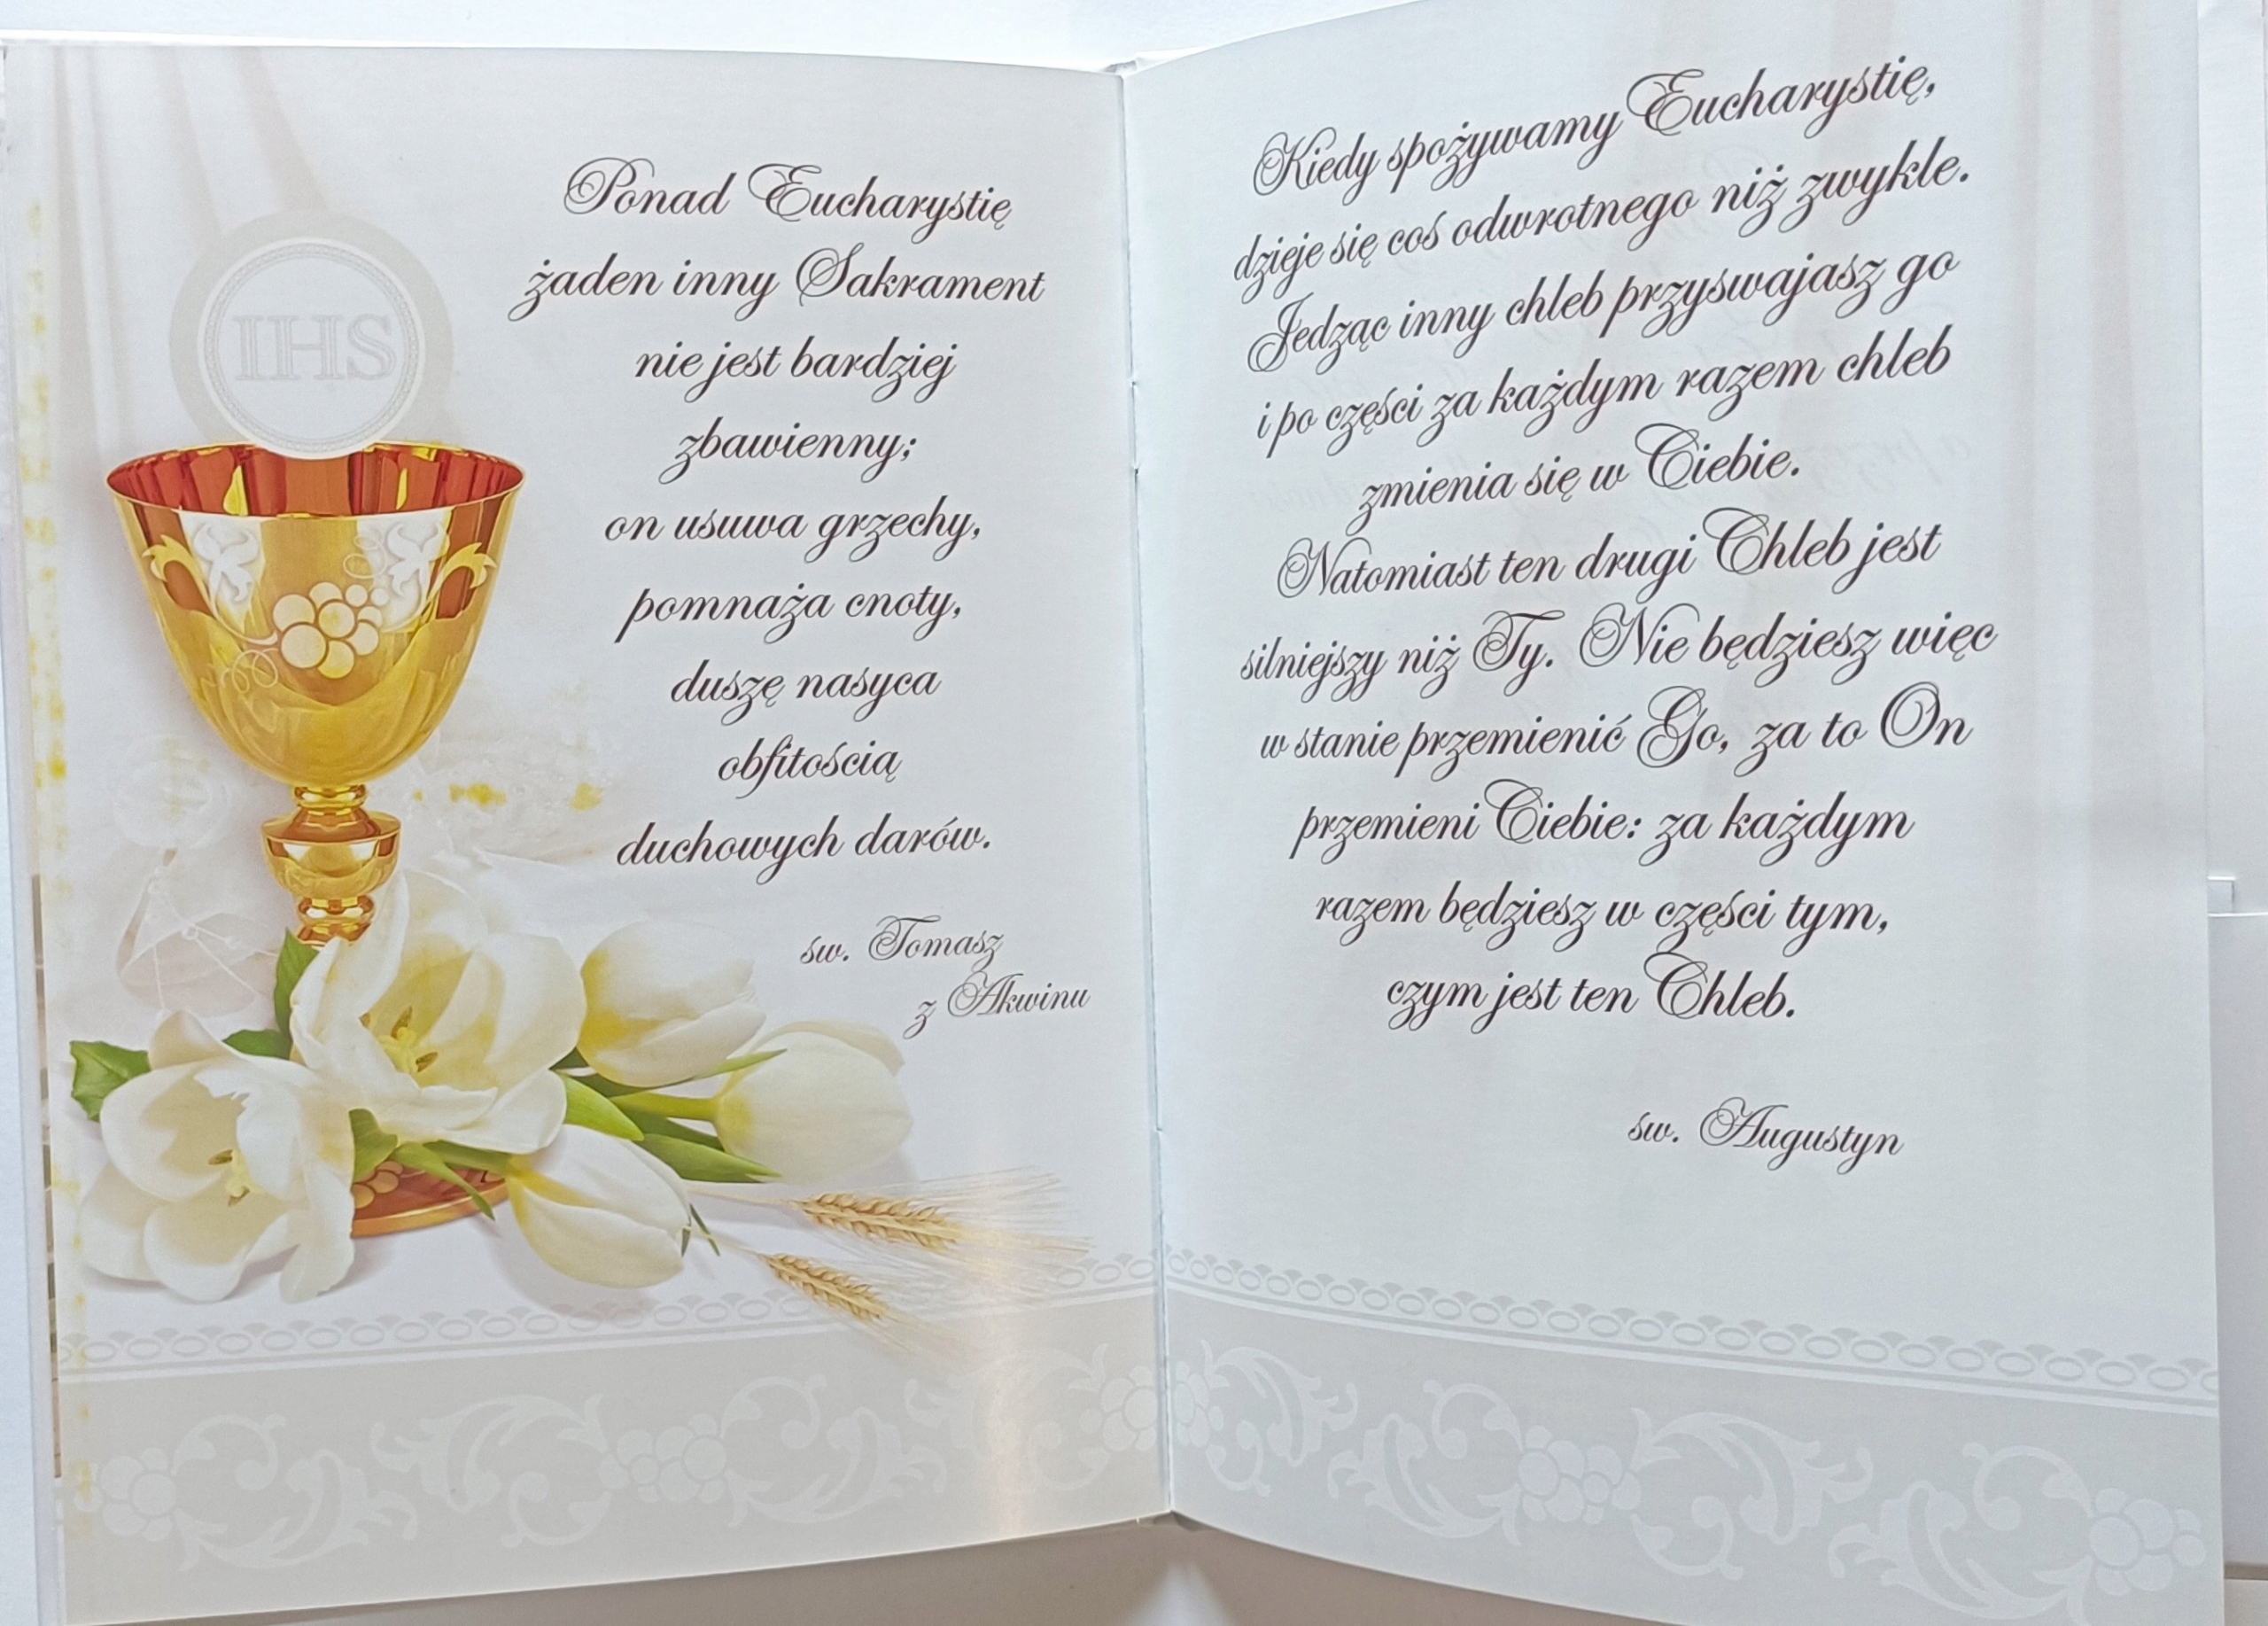 IHS
Ponad Eucharystię
żaden inny Sakrament
nie jest bardziej
zbawienny;
on usuwa grzechy,
pomnaża cnoty,
duszę nasyca
obfitością
duchowych darów.
św. Tomasz
z Akwinu
Kiedy spożywamy Eucharystię,
dzieje się coś odwrotnego niż zwykle.
Jedząc inny chleb przyswajasz go
i po części za każdym razem chleb
zmienia się w Ciebie.
Natomiast ten drugi Chleb jest
silniejszy niż Ty. Nie będziesz więc
w stanie przemienić Go, za to On
przemieni Ciebie: za każdym
razem będziesz w części tym,
czym jest ten Chleb.
św. Augustyn